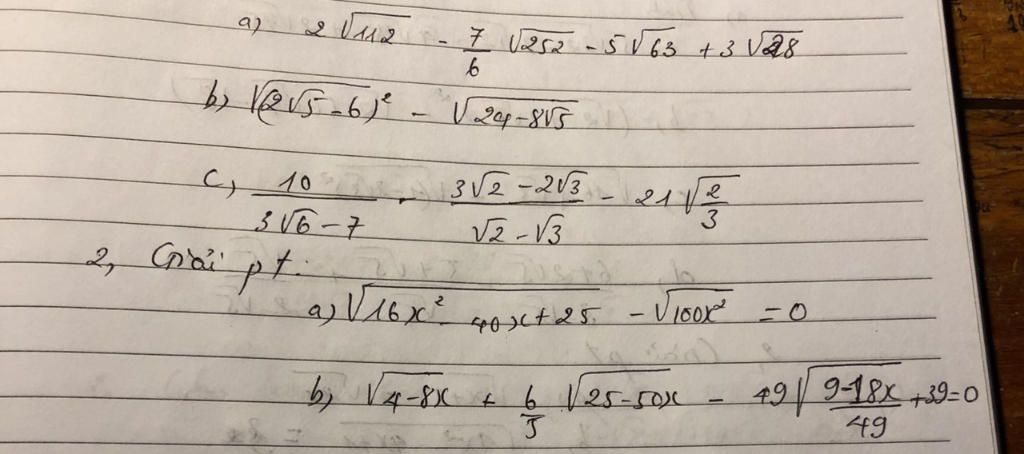 a) 2√112 - 7/6 √252 - 5√63 + 3√28
b) √(2√5-6)² - √24-8√5
c, 10/(3√6-7) - (3√2-2√3)/(√2-√3) - 21√(2/3)
2, Giải pt:
a) √16x² - 40x+25 - √100x² = 0
b) √4-8x + 6/5 √25-50x - 49√((9-18x)/49) +39=0